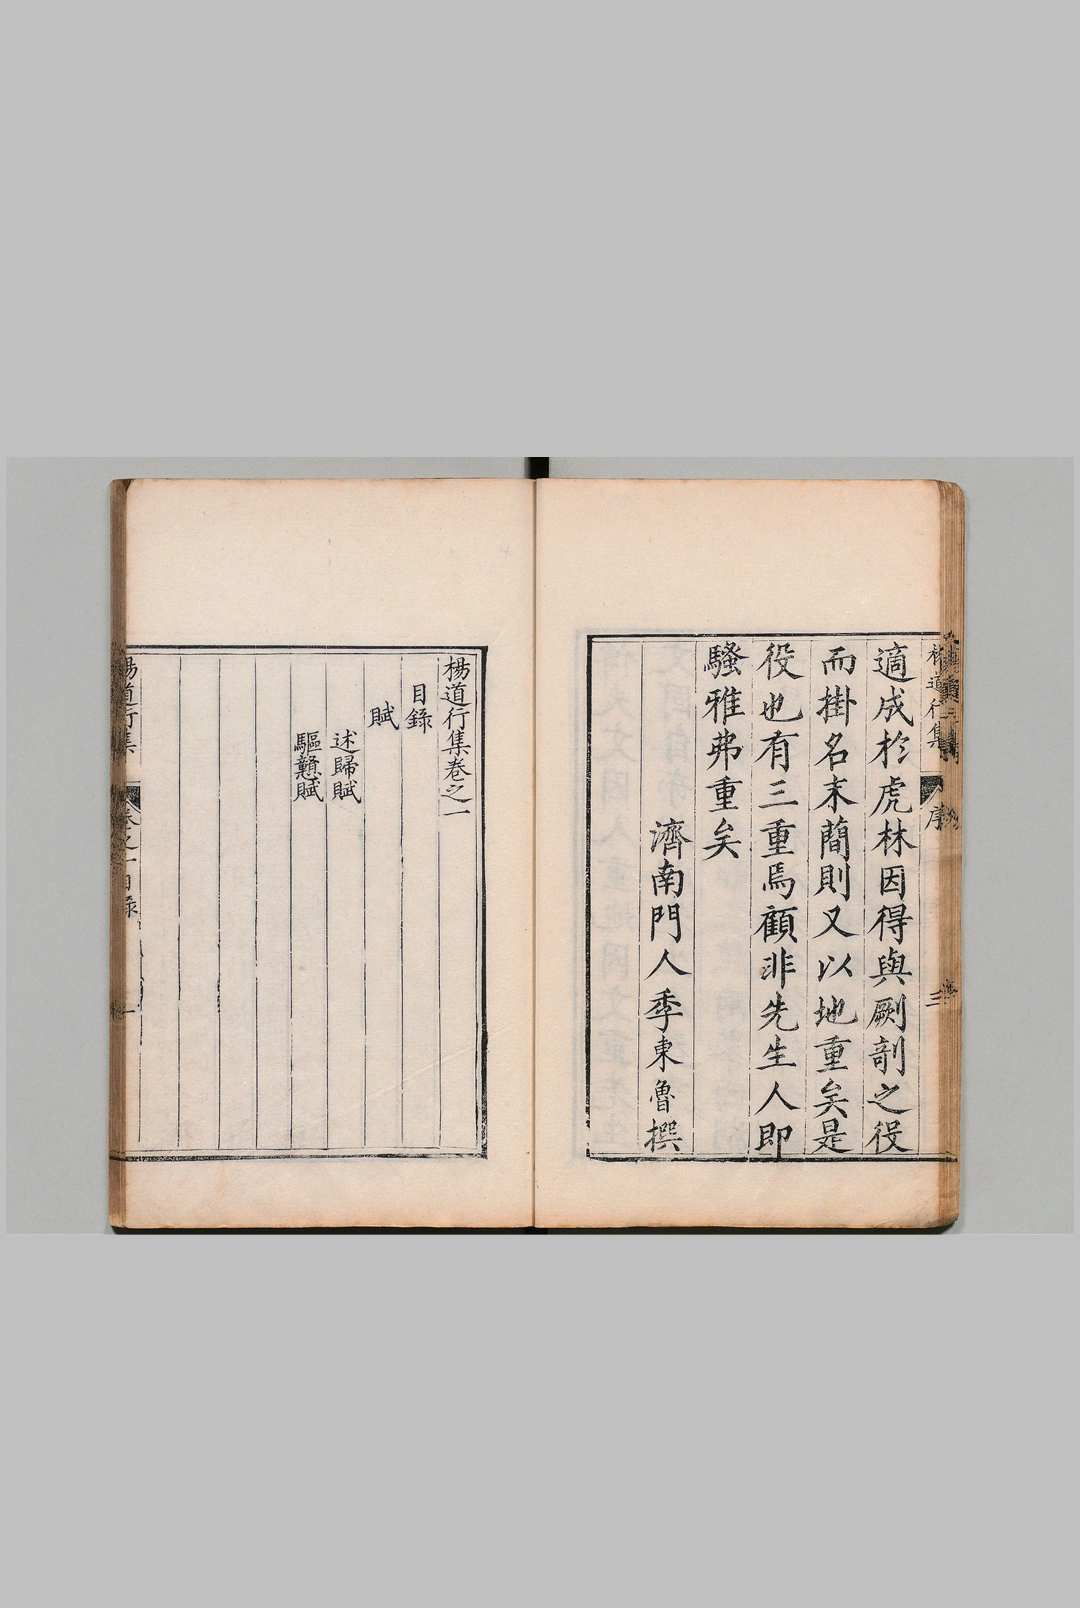 適成於虎林因得與劂剞之役
而掛名末簡則又以地重矣是
役也有三重焉顧非先生人即
騷雅弗重矣
濟南門人季東魯撰
楊道行集
序
三
楊道行集卷之一
目錄
賦
述歸賦
驅戇賦
楊道行集
卷之一目錄
一